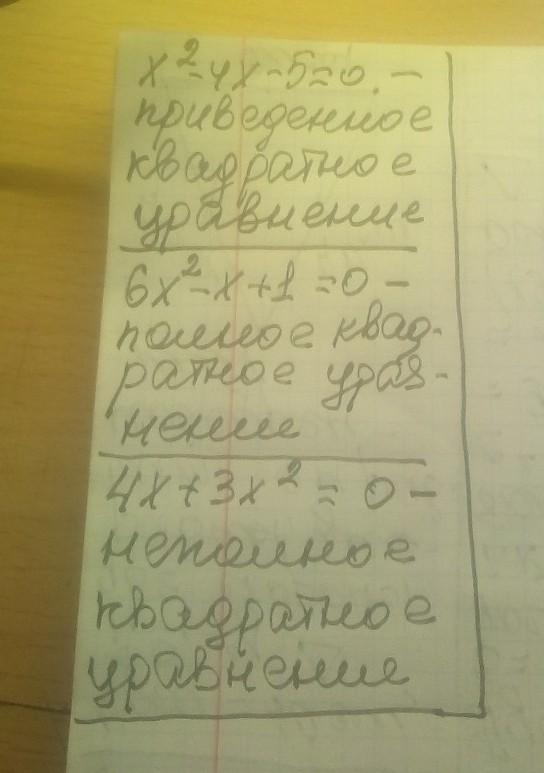 x²-4x-5=0. –
приведенное
квадратное
уравнение
6x²-x+1=0 –
полное квад-
ратное урав-
нение
4x+3x²=0 –
неполное
квадратное
уравнение